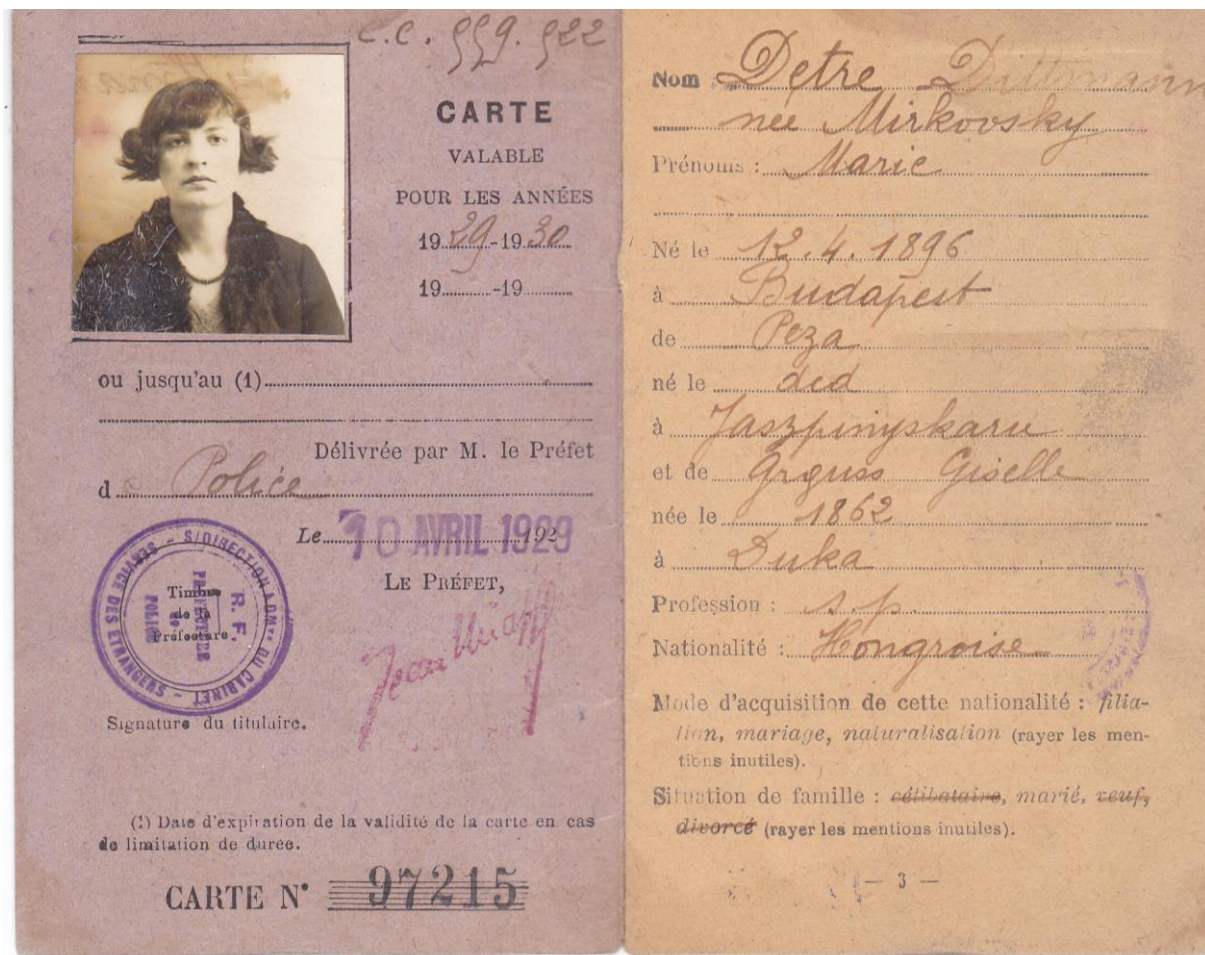 C.C. 559.522
CARTE
VALABLE
POUR LES ANNÉES
1929-1930
19 -19
ou jusqu'au (1)
Délivrée par M. le Préfet
de Police
Le 10 AVRIL 1929 192
LE PRÉFET,
S/DIRECTION ADMve DU CABINET - SERVICE DES ETRANGERS -
R.F.
PREFECTURE
de
POLICE
Timbre
de la
Préfecture.
Signature du titulaire.
(1) Date d'expiration de la validité de la carte en cas
de limitation de durée.
CARTE N° 97215
Nom Detre Dittmann
née Mirkovsky
Prénoms : Marie
Né le 12.4.1896
à Budapest
de Peza
né le dcd
à
et de Giselle
née le 1862
à Duka
Profession : s.p.
Nationalité : Hongroise
Mode d'acquisition de cette nationalité : filia-
tion, mariage, naturalisation (rayer les men-
tions inutiles).
Situation de famille : célibataire, marié, veuf,
divorcé (rayer les mentions inutiles).
— 3 —